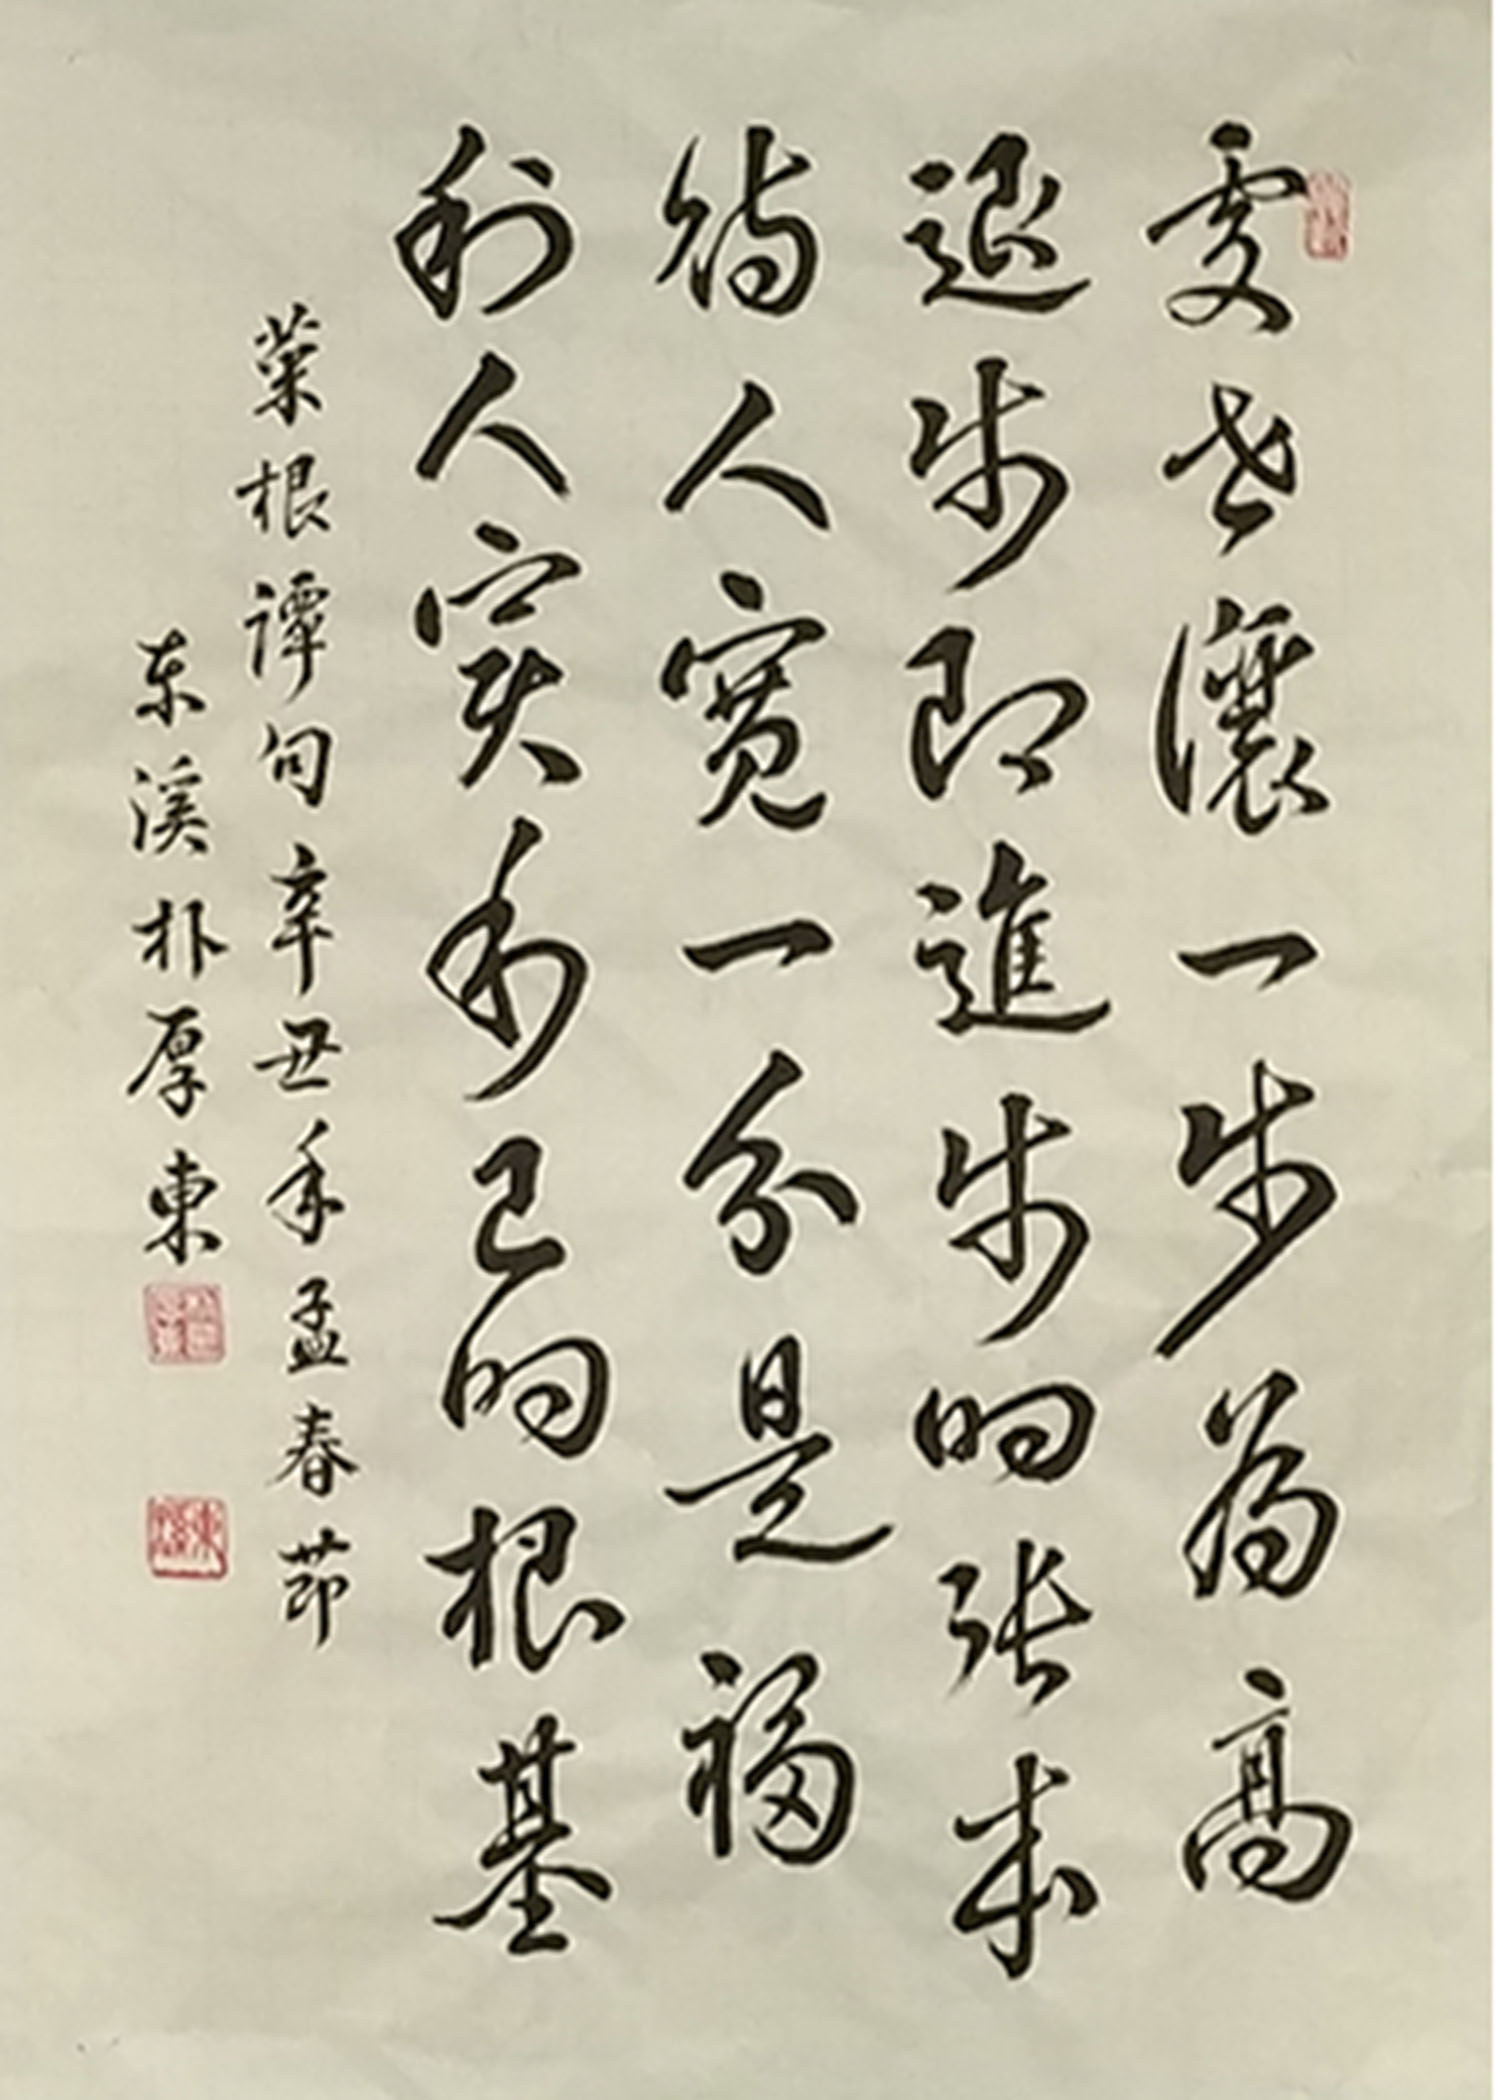 處世讓一步為高
退步即進步的張本
待人寬一分是福
利人实利己的根基
菜根谭句辛丑年孟春节
东溪朴厚東